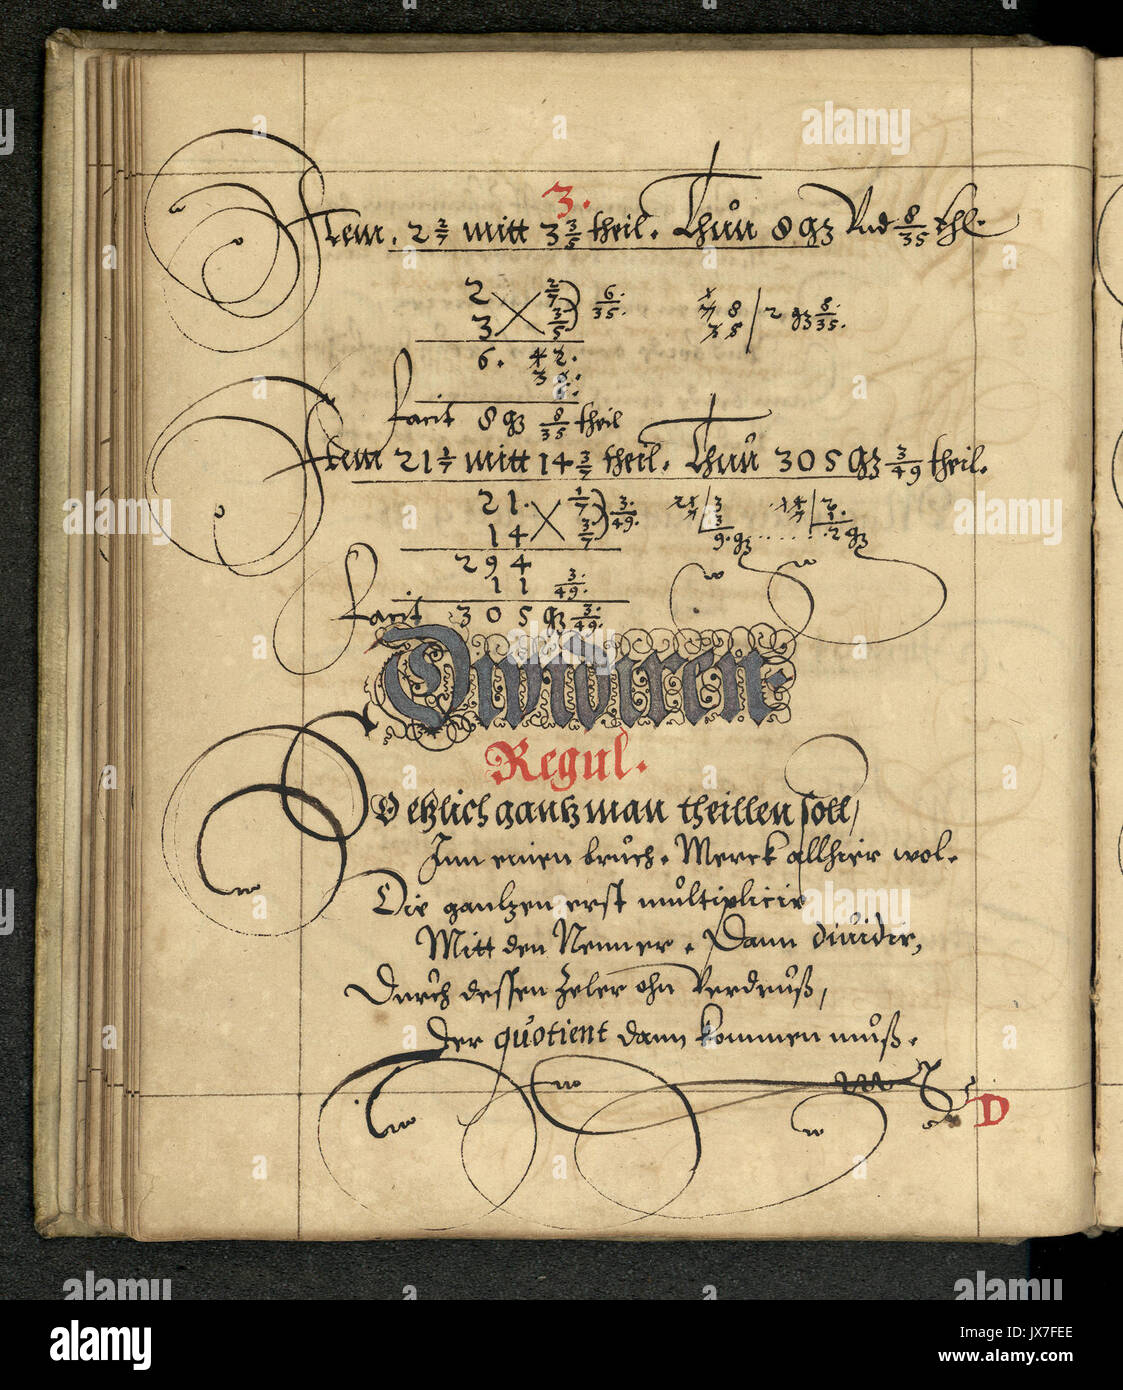 3.
Item. 2 2/7 mitt 3 3/5 theil. Thun 8 gz Vnd 8/35 thl.
2 2/7 6/35. 8 2 gz 8/35.
3 3/5
6. 42.
facit 8 gz 8/35 theil
Item 21 1/7 mitt 14 3/7 theil. Thun 305 gz 3/49 theil.
21. 1/7 3/49. 3 2.
14 3/7 9. gz ...... 2 gz
294
11 3/49.
facit 305 gz 3/49.
Diuidiren.
Regul.
So etzlich gantz man theillen soll,
Inn einen bruch. Merck allhier wol.
Die gantzen erst multiplicir
Mitt den Nenner. Dann diuidir,
Durch dessen Zeler ohn Verdruß,
Der quotient dann kommen muß.
D
alamy
JX7FEE
www.alamy.com